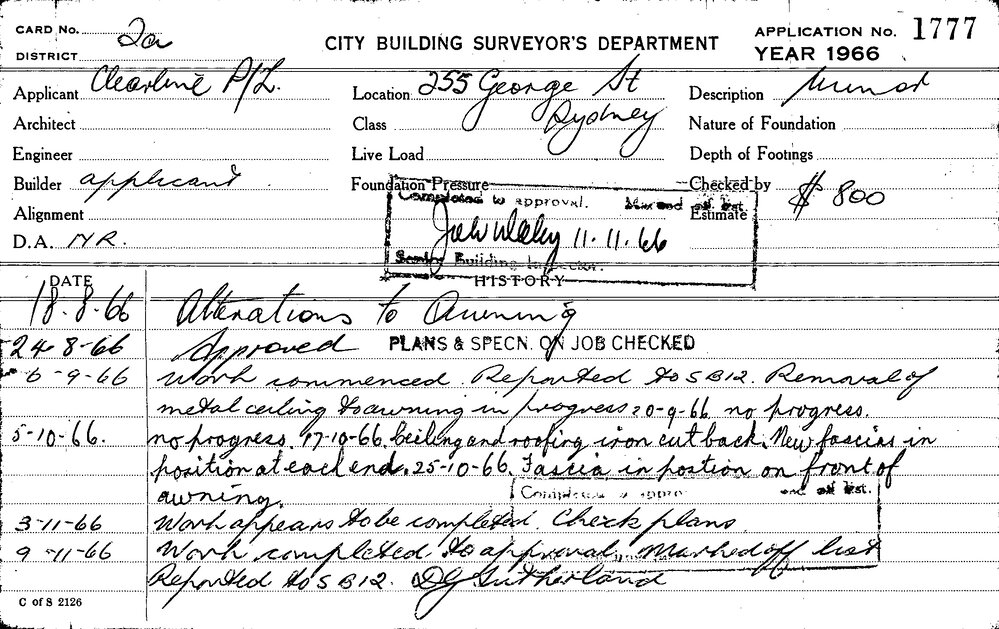 CARD No. 2a
DISTRICT
CITY BUILDING SURVEYOR'S DEPARTMENT
APPLICATION No. 1777
YEAR 1966
Applicant Clearline P/L.
Location 255 George St
Sydney
Description Minor
Architect
Class
Nature of Foundation
Engineer
Live Load
Depth of Footings
Builder applicant
Foundation Pressure
Checked by
Completed to approval. Marked off list.
Alignment
Estimate $ 800
11.11.66
D.A. NR.
Senior Building Inspector.
DATE
HISTORY
18.8.66 Alterations to Awning
24-8-66 Approved PLANS & SPECN. ON JOB CHECKED
6-9-66 Work commenced. Reported to SB12. Removal of
metal ceiling to awning in progress 20-9-66 no progress.
5-10-66. no progress. 17-10-66. Ceiling and roofing iron cut back. New fascias in
position at each end. 25-10-66. Fascia in postion on front of
awning.
Completed to appro off list.
3-11-66 Work appears to be completed. Check plans.
9-11-66 Work completed to approval. Marked off list
Reported to SB12. DG Sutherland
C of S 2126